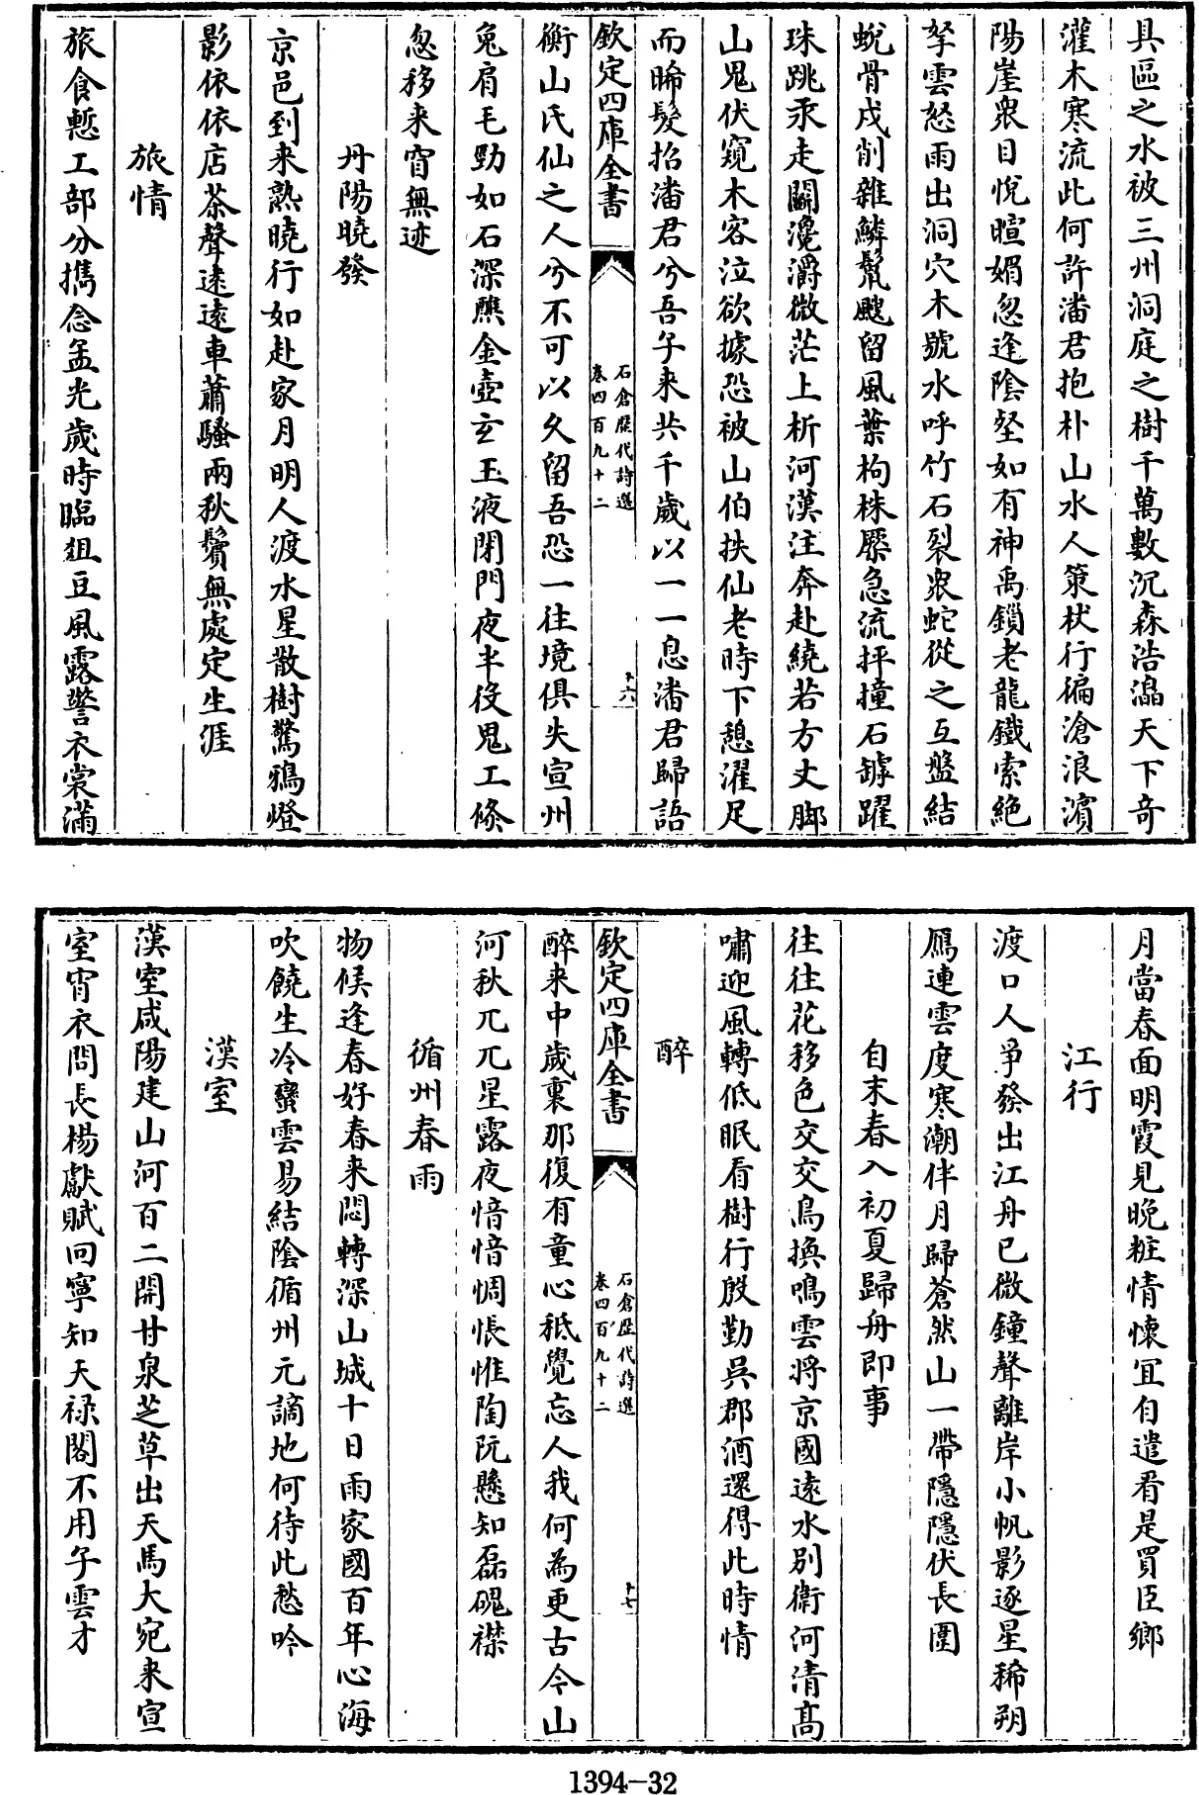 具區之水被三州洞庭之樹千萬數沉森浩瀛天下奇
灌木寒流此何許潘君抱朴山水人策杖行徧滄浪濱
陽崖衆目悅暄媚忽逢陰壑如有神禹鎖老龍鐵索絶
拏雲怒雨出洞穴木號水呼竹石裂衆蛇從之互盤結
蛻骨戍削雜鱗鬛颼留風葉枸株㷉急流抨撞石罅躍
珠跳汞走鬬瀺灂微茫上析河漢注奔赴繞若方丈脚
山鬼伏窺木客泣欲據恐被山伯扶仙老時下憩濯足
而晞髮招潘君兮吾子来共千歲以一一息潘君歸語
欽定四庫全書
石倉歷代詩選
卷四百九十二
十六
衡山氏仙之人兮不可以久留吾恐一往境俱失宣州
兔肩毛勁如石深𤑔金壺玄玉液閉門夜半役鬼工倐
忽移来窅無迹
丹陽曉發
京邑到来熟曉行如赴家月明人渡水星散樹驚鴉燈
影依依店茶聲逺逺車蕭騷兩秋鬢無處定生涯
旅情
旅食慙工部分携念孟光歲時臨俎豆風露警衣裳滿
月當春面明霞見晚粧情懐宜自遣看是買臣鄉
江行
渡口人爭發出江舟已微鐘聲離岸小帆影逐星稀朔
鴈連雲度寒潮伴月歸蒼然山一帶隱隱伏長圍
自末春入初夏歸舟即事
往往花移色交交鳥換鳴雲將京國逺水別衛河清髙
嘯迎風轉低眠看樹行殷勤吳郡酒還得此時情
醉
欽定四庫全書
石倉歷代詩選
卷四百九十二
十七
醉来中歲裏那復有童心秪覺忘人我何為更古今山
河秋兀兀星露夜愔愔惆悵惟陶阮懸知磊磈襟
循州春雨
物候逢春好春来悶轉深山城十日雨家國百年心海
吹饒生冷蠻雲易結陰循州元謫地何待此愁吟
漢室
漢室咸陽建山河百二開甘泉芝草出天馬大宛来宣
室宵衣問長楊獻賦回寧知天禄閣不用子雲才
1394-32